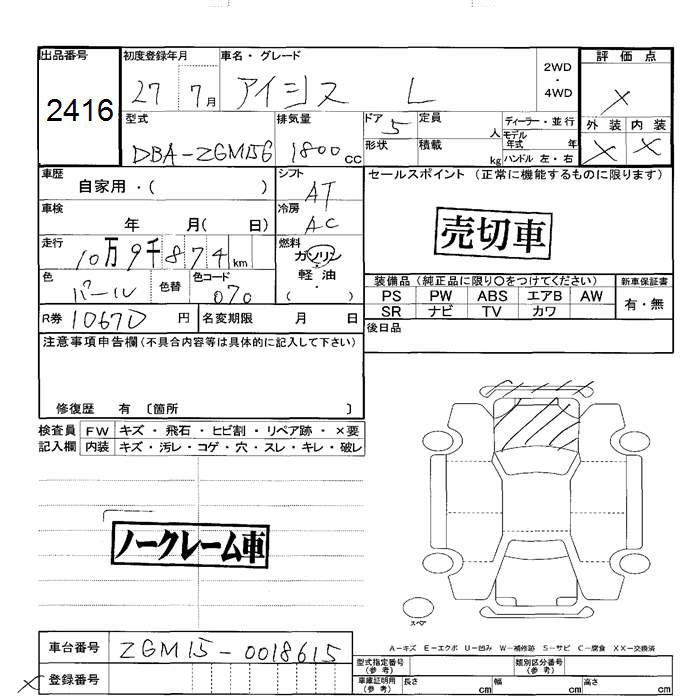 出品番号 初度登録年月 車名・グレード 評価点
2416 27 7月 アイシス L 2WD ・ 4WD X
型式 排気量 ドア 5 定員 人 ディーラー・並行 外装 内装
DBA-ZGM15G 1800cc 形状 積載 kg モデル年式 年 ハンドル 左・右 X X
車歴 シフト セールスポイント(正常に機能するものに限ります)
自家用・( ) AT
車検 冷房
年 月( 日) AC 売切車
走行 燃料
10万9千874km ガソリン
色 色替 色コード 軽油
パール 070 ( ・ )
装備品(純正品に限り○をつけてください) 新車保証書
PS PW ABS エアB AW 有・無
SR ナビ TV カワ
R券 10670 円 名変期限 月 日 後日品
注意事項申告欄(不具合内容等は具体的に記入して下さい)
修復歴 有 〔箇所 〕
検査員 FW キズ・飛石・ヒビ割・リペア跡・×要
記入欄 内装 キズ・汚レ・コゲ・穴・スレ・キレ・破レ
ノークレーム車
スペア
A-キズ E-エクボ U-凹み W-補修跡 S-サビ C-腐食 XX-交換済
車台番号 ZGM15-0018615
型式指定番号(参考) 類別区分番号(参考)
X 登録番号
車庫証明用(参考) 長さ cm 幅 cm 高さ cm